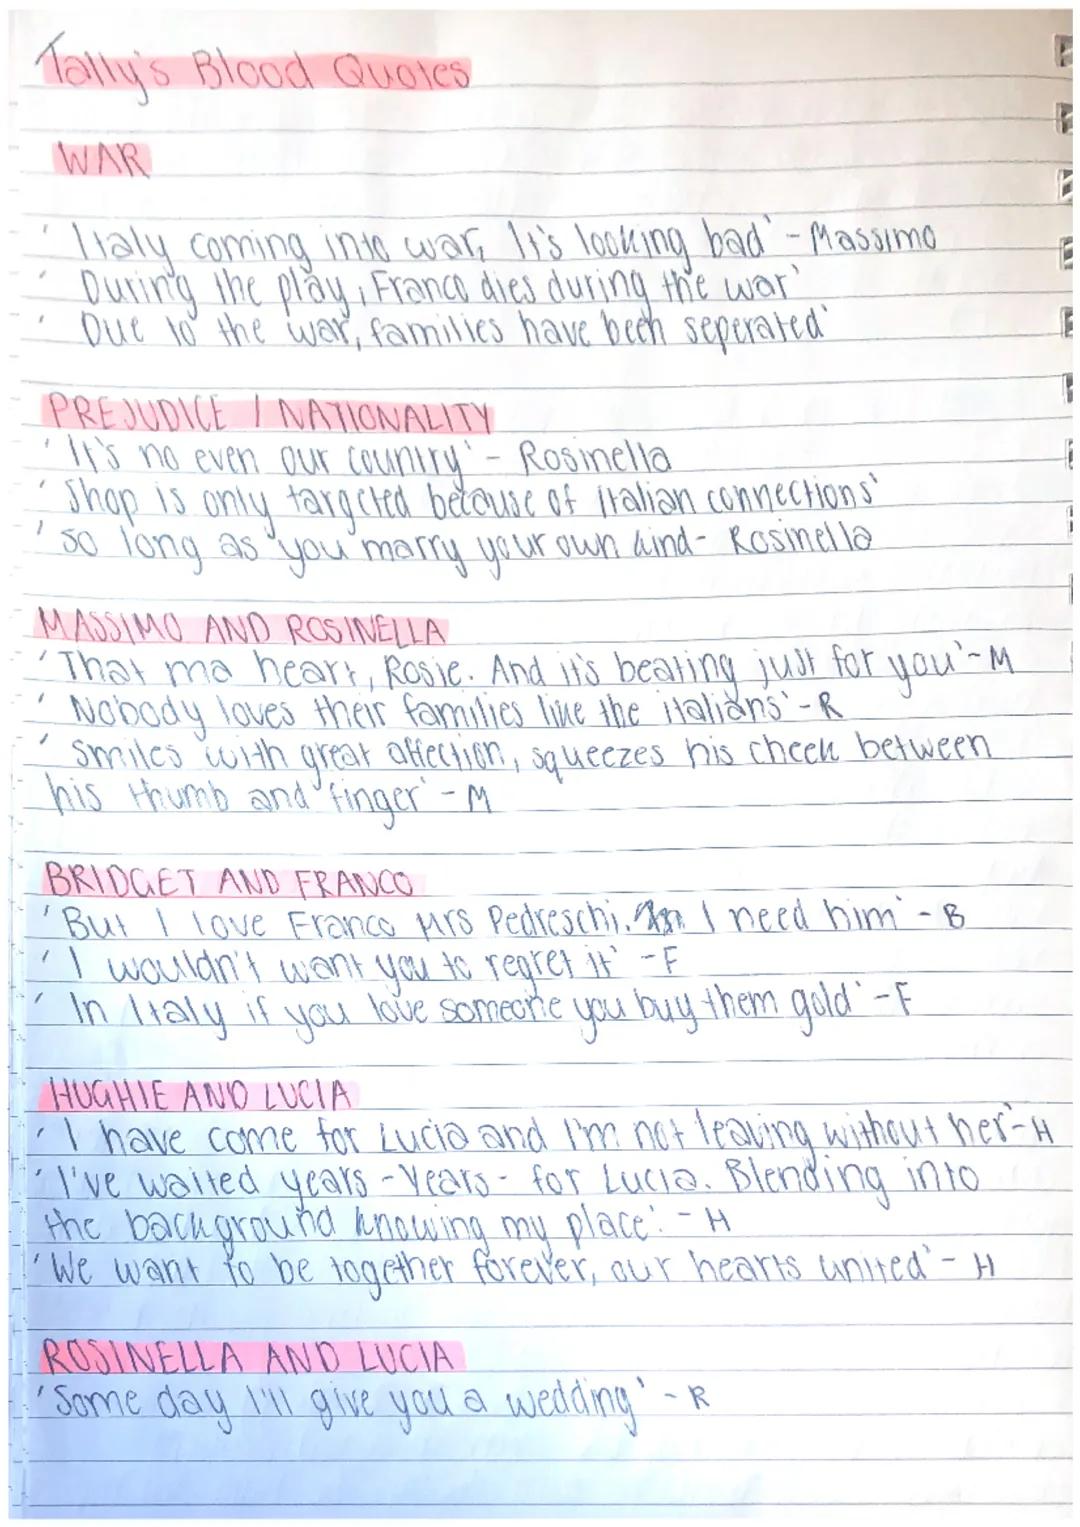 Tally's Blood Quotes
WAR
' Italy coming into war, It's looking bad' - Massimo
' During the play, Franco dies during the war'
' Due to the war, families have been seperated'
PREJUDICE / NATIONALITY
' It's no even our country' - Rosinella
' Shop is only targeted because of italian connections'
' so long as you marry your own kind- Rosinella
MASSIMO AND ROSINELLA
' That ma heart, Rosie. And it's beating just for you'-M
' Nobody loves their families like the italians' -R
' smiles with great affection, squeezes his cheek between
his thumb and finger' - M
BRIDGET AND FRANCO
' But I love Franco Mrs Pedreschi. I need him' - B
' I wouldn't want you to regret it' -F
' In Italy if you love someone you buy them gold' -F
HUGHIE AND LUCIA
' I have come for Lucia and I'm not leaving without her'-H
' I've waited years -Years- for Lucia. Blending into
the background knowing my place'. - H
' We want to be together forever, our hearts united' - H
ROSINELLA AND LUCIA
' Some day I'll give you a wedding' - R